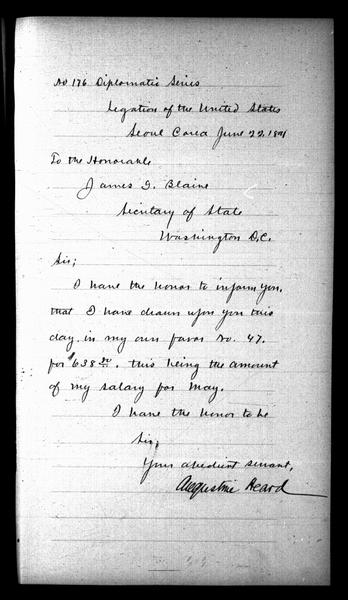 No 176 Diplomatic Series
Legation of the United States
Seoul Corea June 22, 1891
To the Honorable
James G. Blaine
Secretary of State
Washington D.C.
Sir;
I have the honor to inform you,
that I have drawn upon you this
day in my own favor No. 47.
for $638 , this being the amount
of my salary for May.
I have the honor to be
Sir,
Your obedient servant,
Augustine Heard